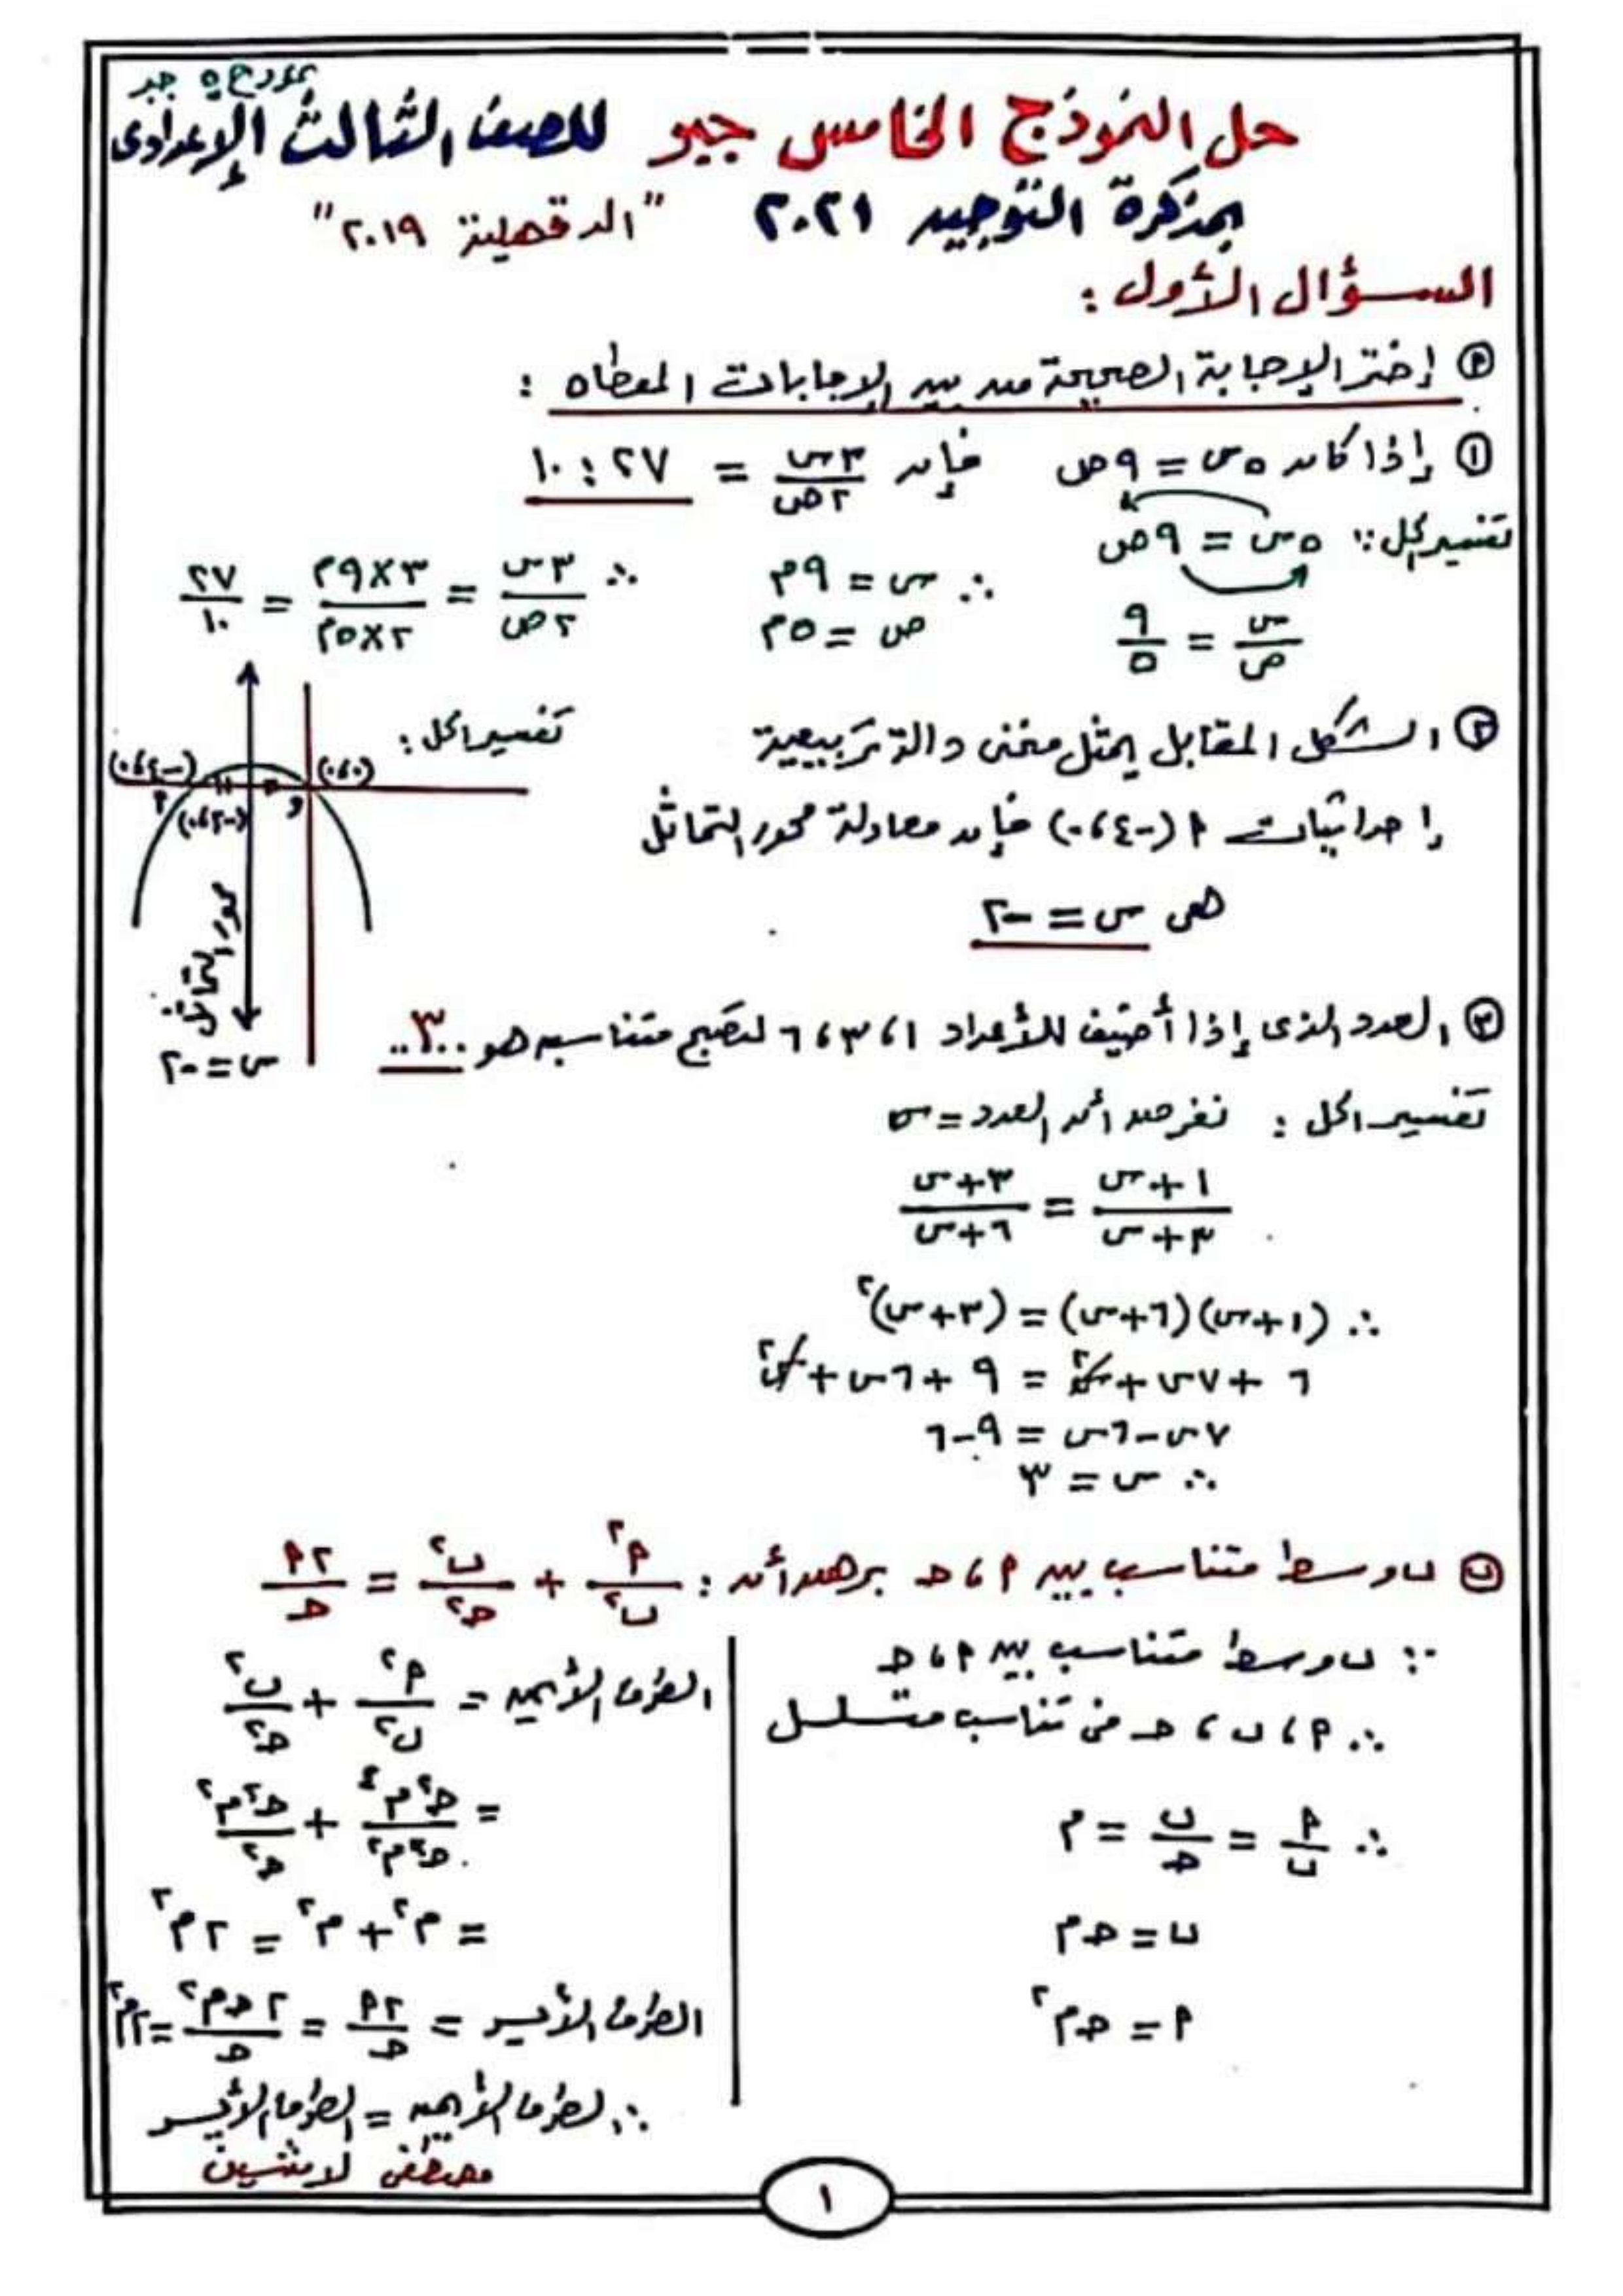 نموذج ٥ جبر
حل النموذج الخامس جبر للصف الثالث الإعدادى
بمذكرة التوجيه ٢٠٢١ "الدقهلية ٢٠١٩"
السؤال الأول :
(أ) إختر الإجابة الصحيحة من بين الإجابات المعطاه :
(١) إذا كان ٥س = ٩ص فإن ٣س/٢ص = ٢٧ : ١٠
تفسير الحل: ∵ ٥س = ٩ص
س/ص = ٩/٥
∴ س = ٩م
ص = ٥م
∴ ٣س/٢ص = ٣×٩م/٢×٥م = ٢٧/١٠
(٢) الشكل المقابل يمثل منحنى دالة تربيعية
إحداثيات أ (-٤،٠) فإن معادلة محور التماثل
هى س = -٢
تفسير الحل :
(-٤،٠) (٠،٠)
أ (-٢،٠) و
محور التماثل
س = -٢
(٣) العدد الذى إذا أضيف للأعداد ١، ٣، ٦ لتصبح متناسبه هو ..٣..
تفسير الحل : نفرض أن العدد = س
١+س/٣+س = ٣+س/٦+س
∴ (١+س)(٦+س) = (٣+س)²
٦ + ٧س + س² = ٩ + ٦س + س²
٧س - ٦س = ٩-٦
∴ س = ٣
(ب) ب وسط متناسب بين أ، ج برهن أن : أ²/ب² + ب²/ج² = ٢أ/ج
∵ ب وسط متناسب بين أ، ج
∴ أ، ب، ج فى تناسب متسلسل
∴ أ/ب = ب/ج = م
ب = ج م
أ = ج م²
الطرف الأيمن = أ²/ب² + ب²/ج²
= ج²م⁴/ج²م² + ج²م²/ج²
= م² + م² = ٢م²
الطرف الأيسر = ٢أ/ج = ٢ج م²/ج = ٢م²
∴ الطرف الأيمن = الطرف الأيسر
مصطفى لاشين
١